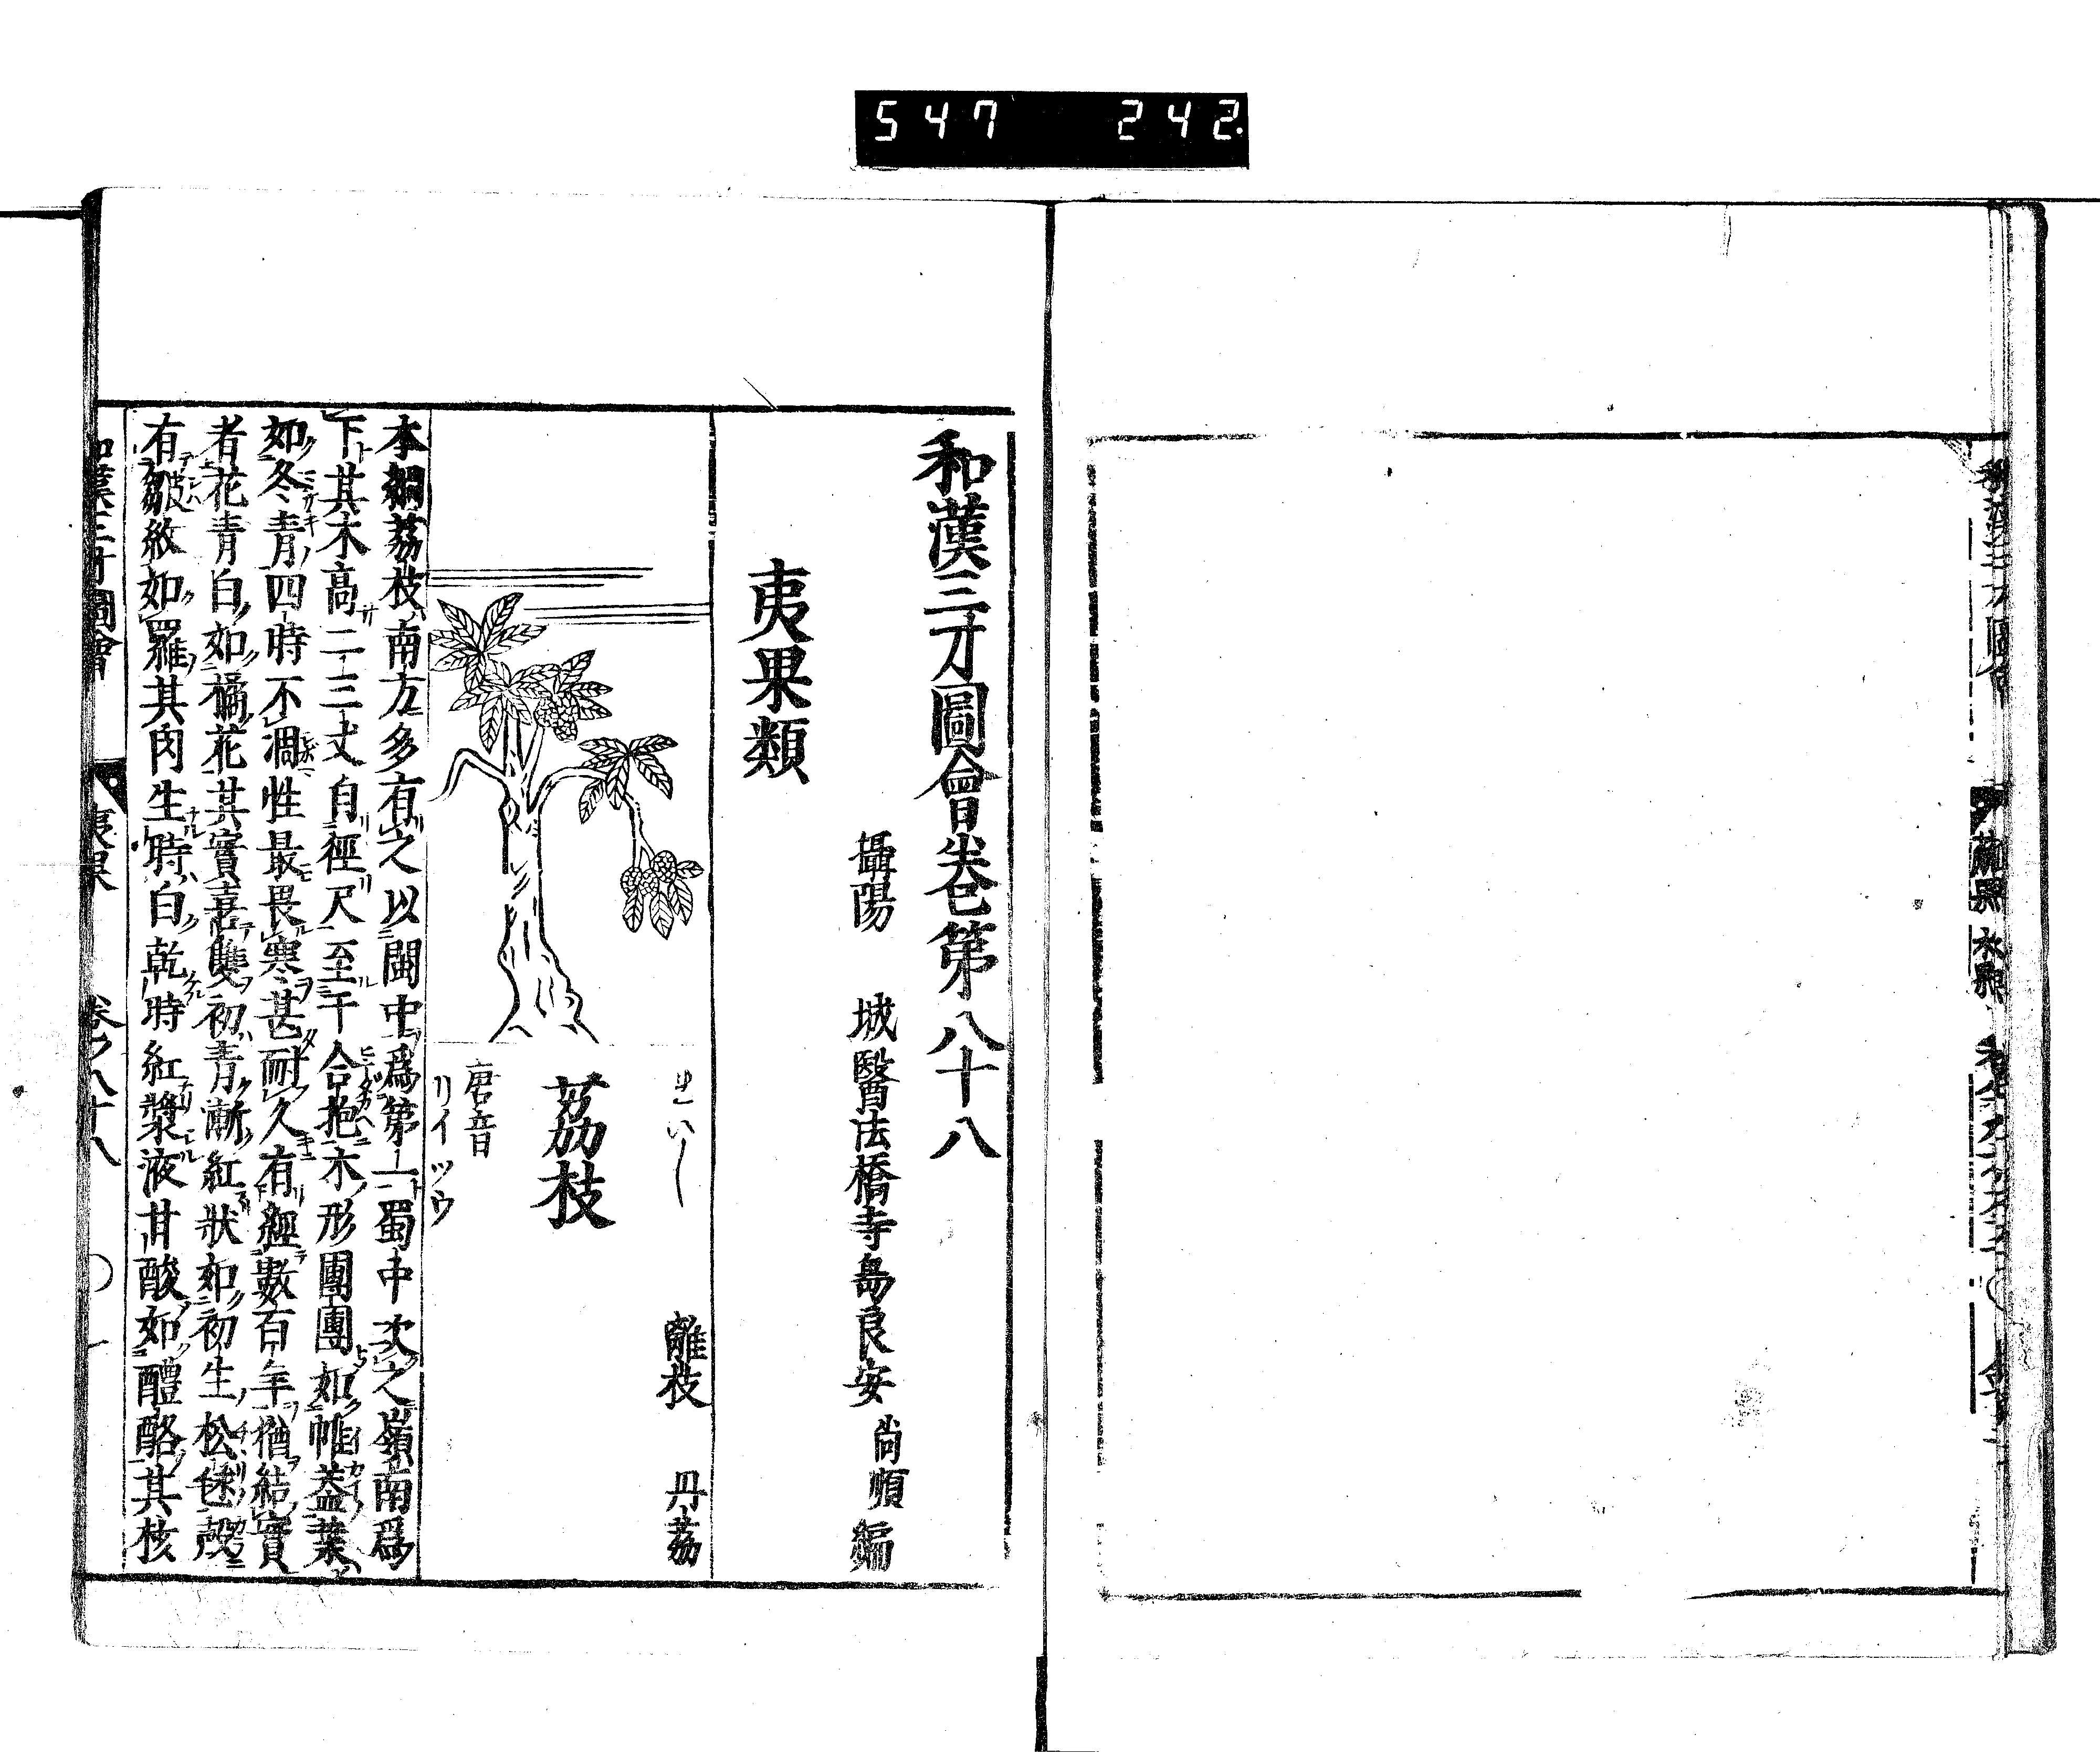 547 242
和漢三才圖會卷第八十八
攝陽 城醫法橋寺島良安 尚順 編
夷果類
れいし
離枝 丹荔
荔枝
唐音
リイ ツウ
本綱荔枝南方多有之以閩中爲第一蜀中次之嶺南爲
下其木高二三丈自徑尺至于合抱木形團團如帷蓋葉
如冬青四時不凋性最畏寒甚耐久有經數百年猶結實
者花青白如橘花其實喜雙初青漸紅狀如初生松毬殼
有皺紋如羅其肉生時白乾時紅漿液甘酸如醴酪其核
和漢三才圖會 夷果 卷之八十八 〇 一